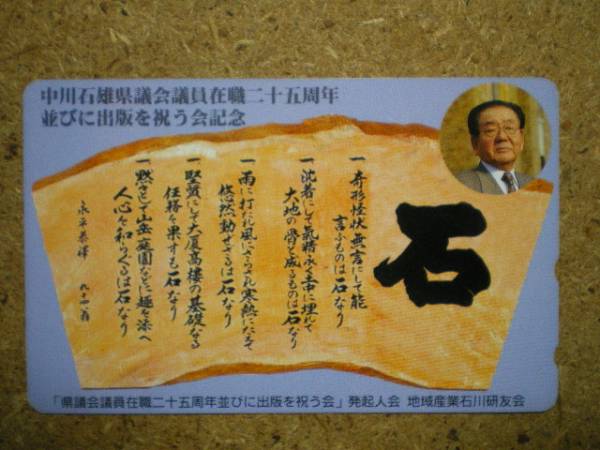 中川石雄県議会議員在職二十五周年
並びに出版を祝う会記念
石
一奇形怪状無言にして能
言ふものは石なり
一沈着にして気精永く土中に埋れて
大地の骨と成るものは石なり
一雨に打たれ風にさらされ寒熱にたえて
悠然動ぜざるは石なり
一堅質にして大厦高楼の基礎たる
任務を果すも石なり
一黙々として山岳庭園などに趣を添へ
人心を和らぐるは石なり
永平泰禅 九十一翁
「県議会議員在職二十五周年並びに出版を祝う会」発起人会 地域産業石川研友会